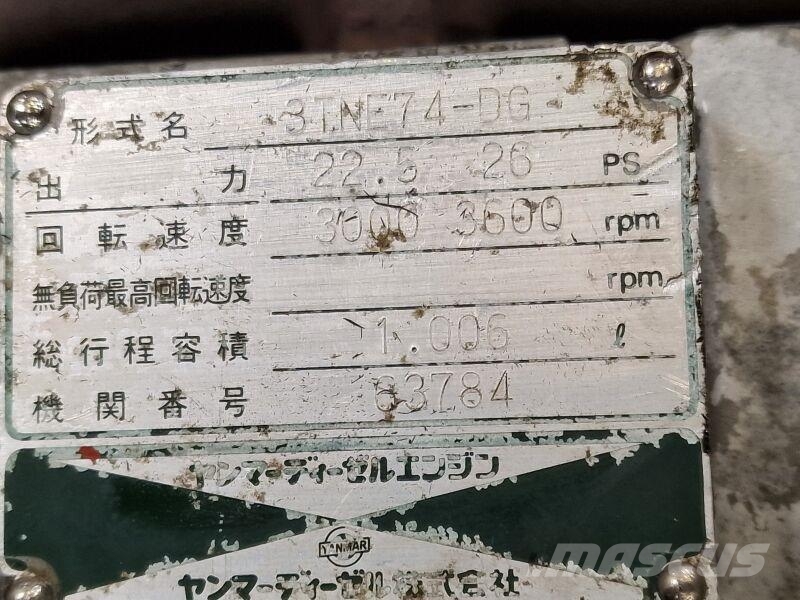 形式名 3TNE74-DG
出力 22.5 26 PS
回転速度 3000 3600 rpm
無負荷最高回転速度 rpm
総行程容積 1.006 ℓ
機関番号 63784
ヤンマーディーゼルエンジン
YANMAR
ヤンマーディーゼル株式会社
MASCUS